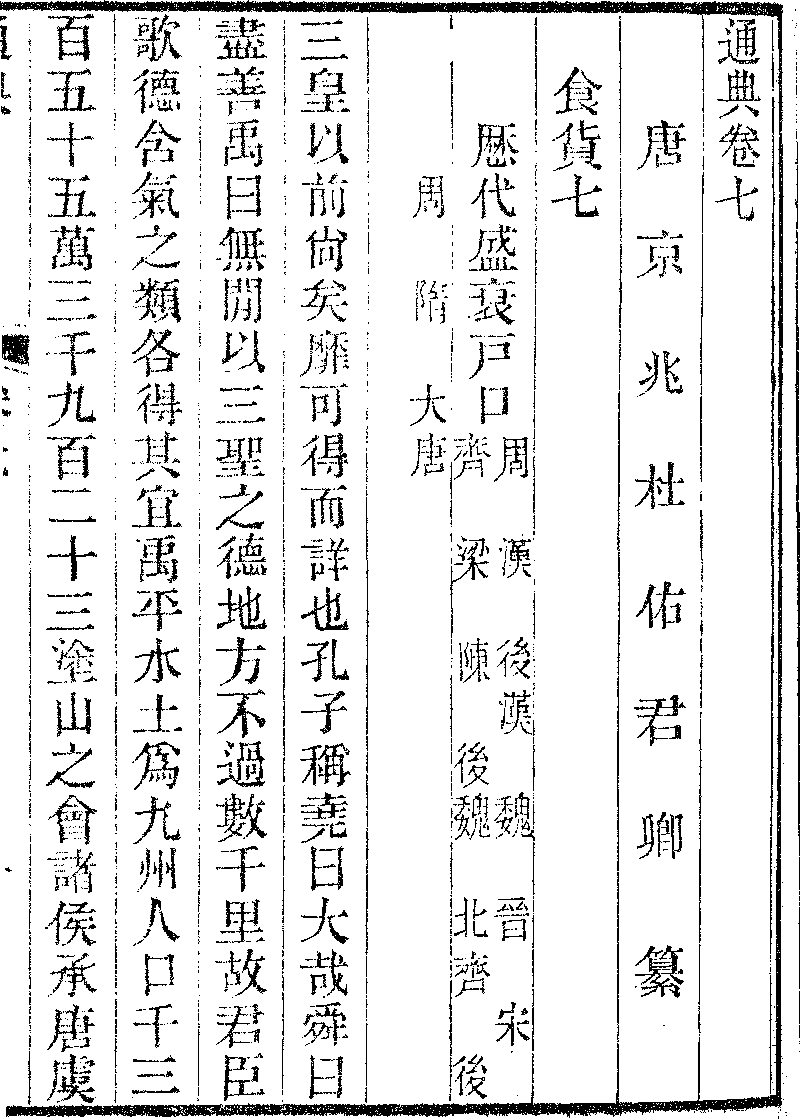 通典卷七
唐京兆杜佑君卿纂
食貨七
歷代盛衰戸口
周漢後漢魏晉宋
齊梁陳後魏北齊後
周隋大唐
三皇以前尙矣靡可得而詳也孔子稱堯曰大哉舜曰
盡善禹曰無閒以三聖之德地方不過數千里故君臣
歌德含氣之類各得其宜禹平水土爲九州人口千三
百五十五萬三千九百二十三塗山之會諸侯承唐虞